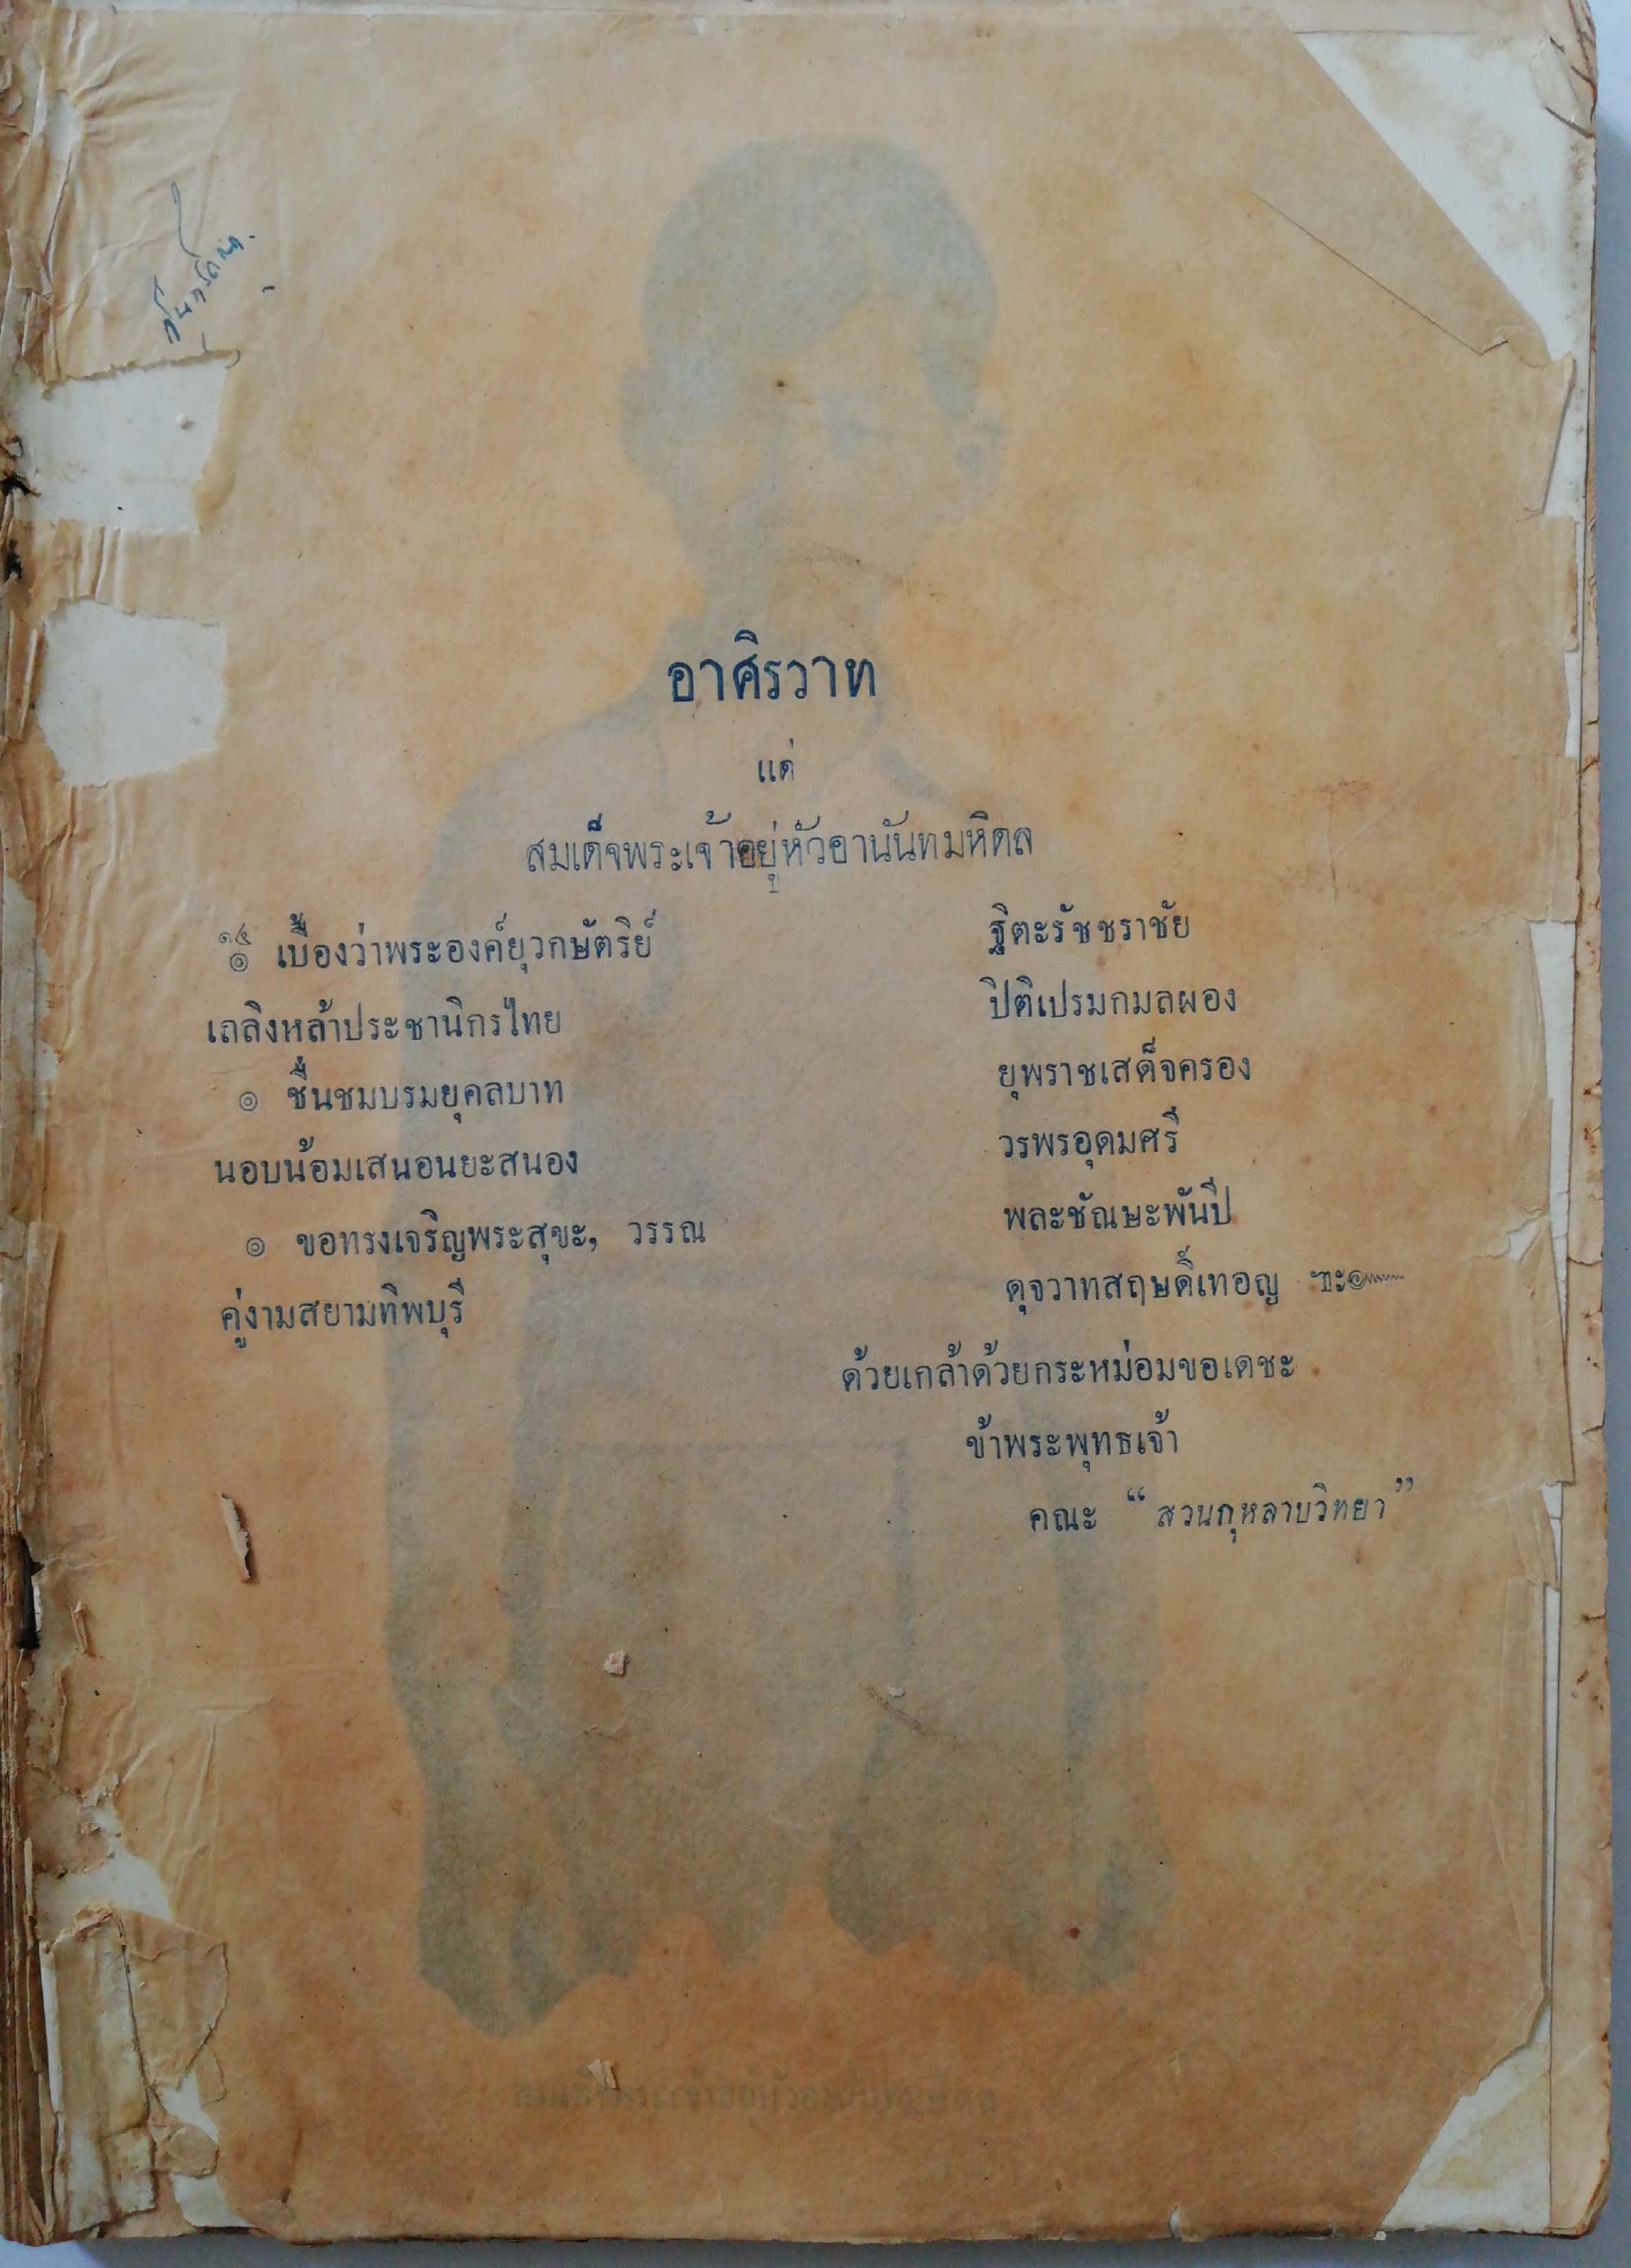 อาศิรวาท
แด่
สมเด็จพระเจ้าอยู่หัวอานันทมหิดล
๏ เบื้องว่าพระองค์ยุวกษัตริย์ ฐิตะรัชชราชัย
เถลิงหล้าประชานิกรไทย ปิติเปรมกมลผอง
๏ ชื่นชมบรมยุคลบาท ยุพราชเสด็จครอง
นอบน้อมเสนอนยะสนอง วรพรอุดมศรี
๏ ขอทรงเจริญพระสุขะ, วรรณ พละชัณษะพันปี
คู่งามสยามทิพบุรี ดุจวาทสฤษดิ์เทอญ ฯะ๛
ด้วยเกล้าด้วยกระหม่อมขอเดชะ
ข้าพระพุทธเจ้า
คณะ “สวนกุหลาบวิทยา”